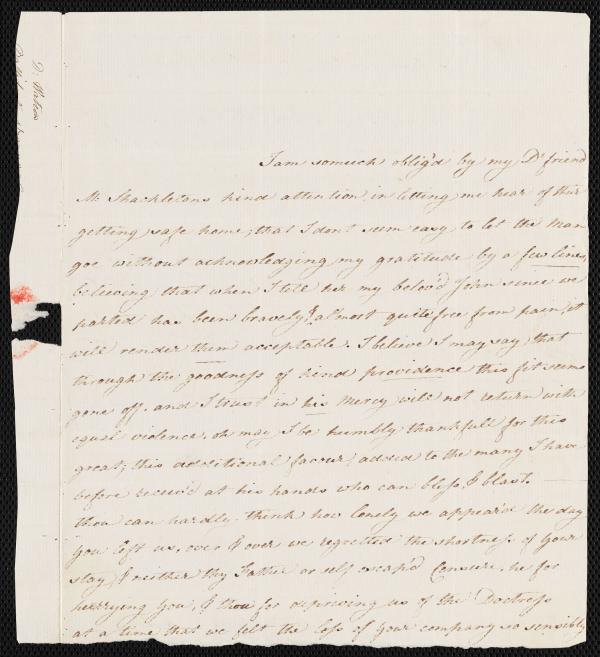 D. Watson
I am somuch oblig'd by my Dr friend
M Shackletons kind attention in letting me hear of their
getting safe home, that I dont seem easy to let the man
goe without acknowledging my gratitude by a few lines,
believing that when I tell her my belov'd John since we
parted has been bravely & almost quite free from pain, it
will render them acceptable. I believe I may say, that
through the goodness of kind providence this fit seems
gone off, and I trust in his Mercy will not return with
equal violence, oh may I be humbly thankfull for this
great; this additional favour, added to the many I have
before receiv'd at his hands who can bless & blast.
thou can hardly think how lonely we appear'd the day
you left us, over & over we regretted the shortness of your
stay, & neither thy Father or self escap'd Censure, he for
hurrying you, & thou for depriving us of the Doctress
at a time that we felt the loss of your company so sensibly